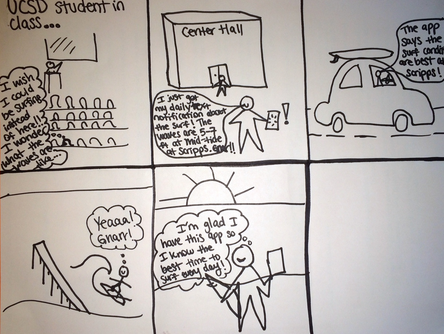 UCSD student in
class...
I wish
I could
be surfing
instead
of here!!
I wonder
what the
waves are
like...
Center Hall
I just got
my daily text
notification about
the surf! The
waves are 5-7
ft at mid-tide
at Scripps. Gnar!!
!
The app
says the
surf condit
are best at
Scripps!
Yeaaa!
Gnar!
I'm glad I
have this app so
I know the
best time to
surf every day!